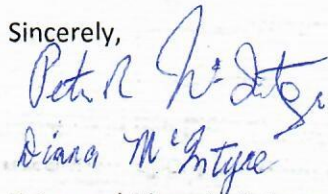 Sincerely,
Peter R McIntyre
Diana McIntyre